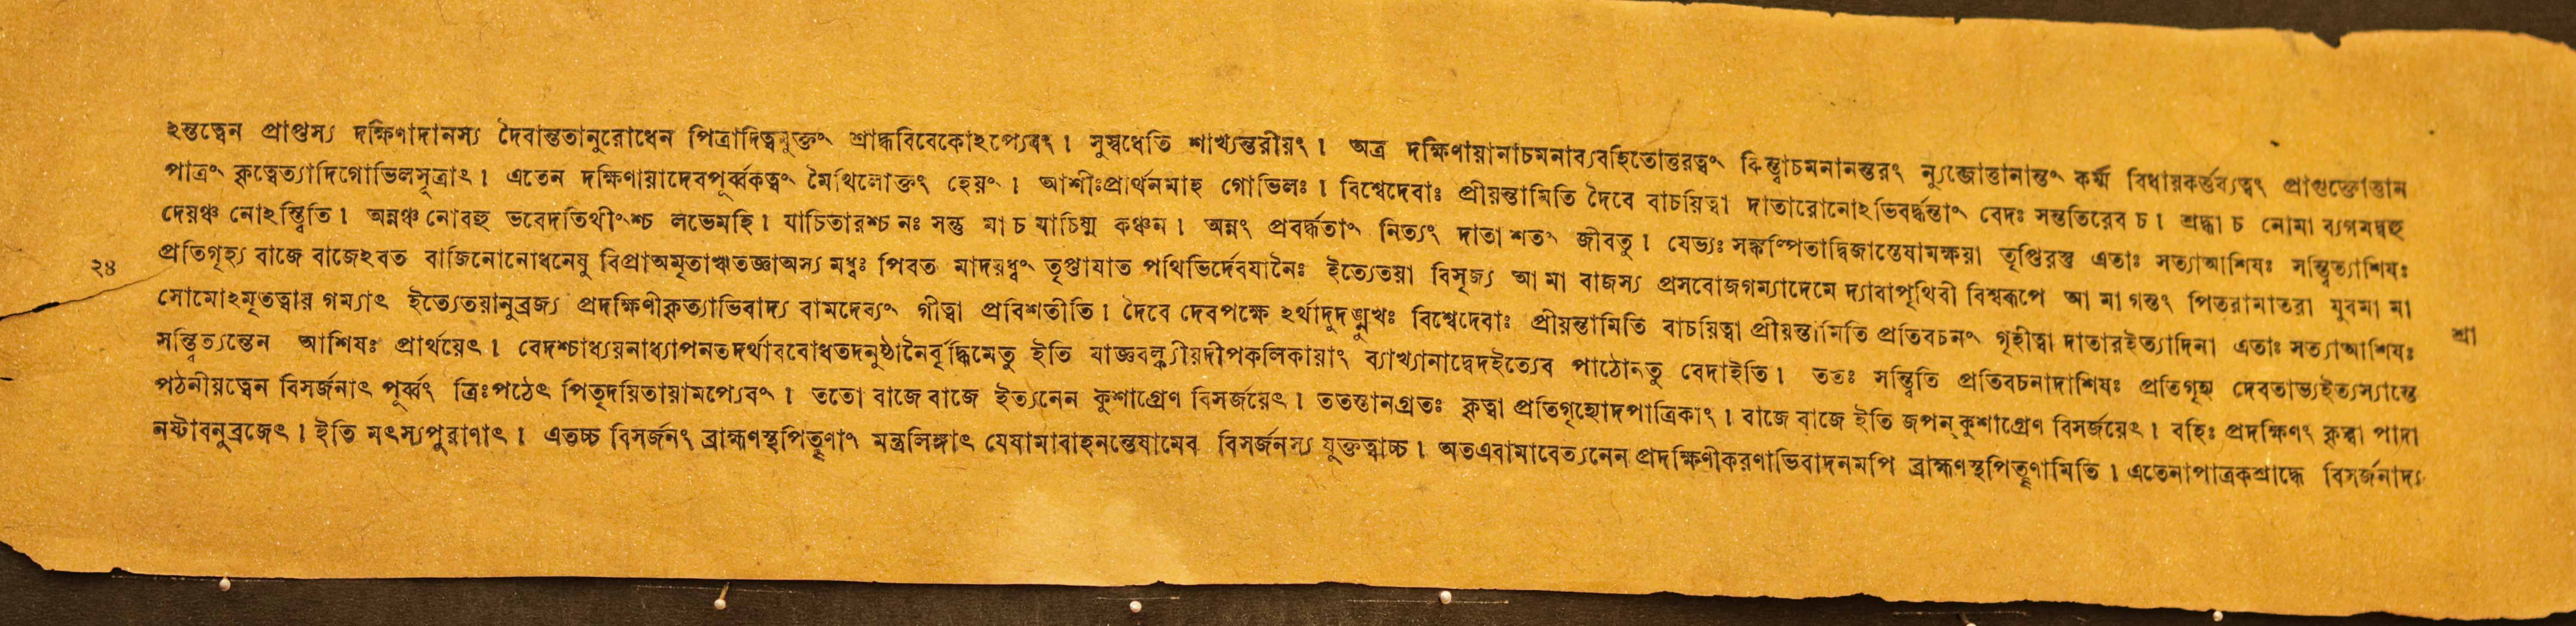 ঽন্তত্বেন প্রাপ্তস্য দক্ষিণাদানস্য দৈবান্ততানুরোধেন পিত্রাদিত্বমুক্তং শ্রাদ্ধবিবেকোঽপ্যেবং। সুস্বধেতি শাখ্যন্তরীয়ং। অত্র দক্ষিণায়ানাচমনাব্যবহিতোত্তরত্বং কিন্ত্বাচমনানন্তরং ন্যুব্জোত্তানান্তং কর্ম্ম বিধায়কর্ত্তব্যত্বং প্রাগুক্তোত্তান
পাত্রং কৃত্বেত্যাদিগোভিলসূত্রাৎ। এতেন দক্ষিণায়াদেবপূর্ব্বকত্বং মৈথিলোক্তং হেয়ং। আশীঃপ্রার্থনমাহ গোভিলঃ। বিশ্বেদেবাঃ প্রীয়ন্তামিতি দৈবে বাচয়িত্বা দাতারোনোঽভিবর্দ্ধন্তাং বেদঃ সন্ততিরেব চ। শ্রদ্ধা চ নোমা ব্যগমদ্বহু
দেয়ঞ্চ নোঽস্ত্বিতি। অন্নঞ্চ নোবহু ভবেদতিথীংশ্চ লভেমহি। যাচিতারশ্চ নঃ সন্তু মা চ যাচিষ্ম কঞ্চন। অন্নং প্রবর্দ্ধতাং নিত্যং দাতা শতং জীবতু। যেভ্যঃ সঙ্কল্পিতাদ্বিজাস্তেষামক্ষয়া তৃপ্তিরস্তু এতাঃ সত্যাআশিষঃ সন্ত্বিত্যাশিষঃ
প্রতিগৃহ্য বাজে বাজেঽবত বাজিনোনোধনেষু বিপ্রাঅমৃতাঋতজ্ঞাঅস্য মধ্বঃ পিবত মাদয়ধ্বং তৃপ্তাযাত পথিভির্দেবযানৈঃ ইত্যেতয়া বিসৃজ্য আ মা বাজস্য প্রসবোজগম্যাদেমে দ্যাবাপৃথিবী বিশ্বরূপে আ মা গন্তুং পিতরামাতরা যুবমা মা
সোমোঽমৃতত্বায় গম্যাৎ ইত্যেতয়ানুব্রজ্য প্রদক্ষিণীকৃত্যাভিবাদ্য বামদেব্যং গীত্বা প্রবিশতীতি। দৈবে দেবপক্ষে ঽর্থাদুদঙ্মুখঃ বিশ্বেদেবাঃ প্রীয়ন্তামিতি বাচয়িত্বা প্রীয়ন্তামিতি প্রতিবচনং গৃহীত্বা দাতারইত্যাদিনা এতাঃ সত্যাআশিষঃ
সন্ত্বিত্যন্তেন আশিষঃ প্রার্থয়েৎ। বেদশ্চাধ্যয়নাধ্যাপনতদর্থাববোধতদনুষ্ঠানৈর্বৃদ্ধিমেতু ইতি যাজ্ঞবল্ক্যীয়দীপকলিকায়াং ব্যাখ্যানাদ্বেদইত্যেব পাঠোনতু বেদাইতি। ততঃ সন্ত্বিতি প্রতিবচনাদাশিষঃ প্রতিগৃহ্য দেবতাভ্যইত্যস্যান্তে
পঠনীয়ত্বেন বিসর্জনাৎ পূর্ব্বং ত্রিঃপঠেৎ পিতৃদয়িতায়ামপ্যেবং। ততো বাজে বাজে ইত্যনেন কুশাগ্রেণ বিসর্জয়েৎ। ততস্তানগ্রতঃ কৃত্বা প্রতিগৃহ্যোদপাত্রিকাং। বাজে বাজে ইতি জপন্ কুশাগ্রেণ বিসর্জয়েৎ। বহিঃ প্রদক্ষিণং কৃত্বা পাদা
নষ্টাবনুব্রজেৎ। ইতি মৎস্যপুরাণাৎ। এতচ্চ বিসর্জনং ব্রাহ্মণস্থপিতৄণাং মন্ত্রলিঙ্গাৎ যেষামাবাহনন্তেষামেব বিসর্জনস্য যুক্তত্বাচ্চ। অতএবামাবেত্যনেন প্রদক্ষিণীকরণাভিবাদনমপি ব্রাহ্মণস্থপিতৄণামিতি। এতেনাপাত্রকশ্রাদ্ধে বিসর্জনাদ্য
২৪
শ্রা